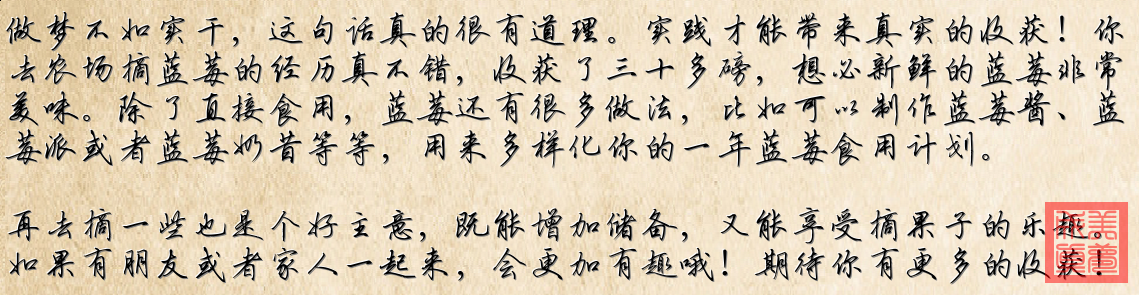 做梦不如实干，这句话真的很有道理。实践才能带来真实的收获！你
去农场摘蓝莓的经历真不错，收获了三十多磅，想必新鲜的蓝莓非常
美味。除了直接食用，蓝莓还有很多做法，比如可以制作蓝莓酱、蓝
莓派或者蓝莓奶昔等等，用来多样化你的一年蓝莓食用计划。
再去摘一些也是个好主意，既能增加储备，又能享受摘果子的乐趣。
如果有朋友或者家人一起来，会更加有趣哦！期待你有更多的收获！